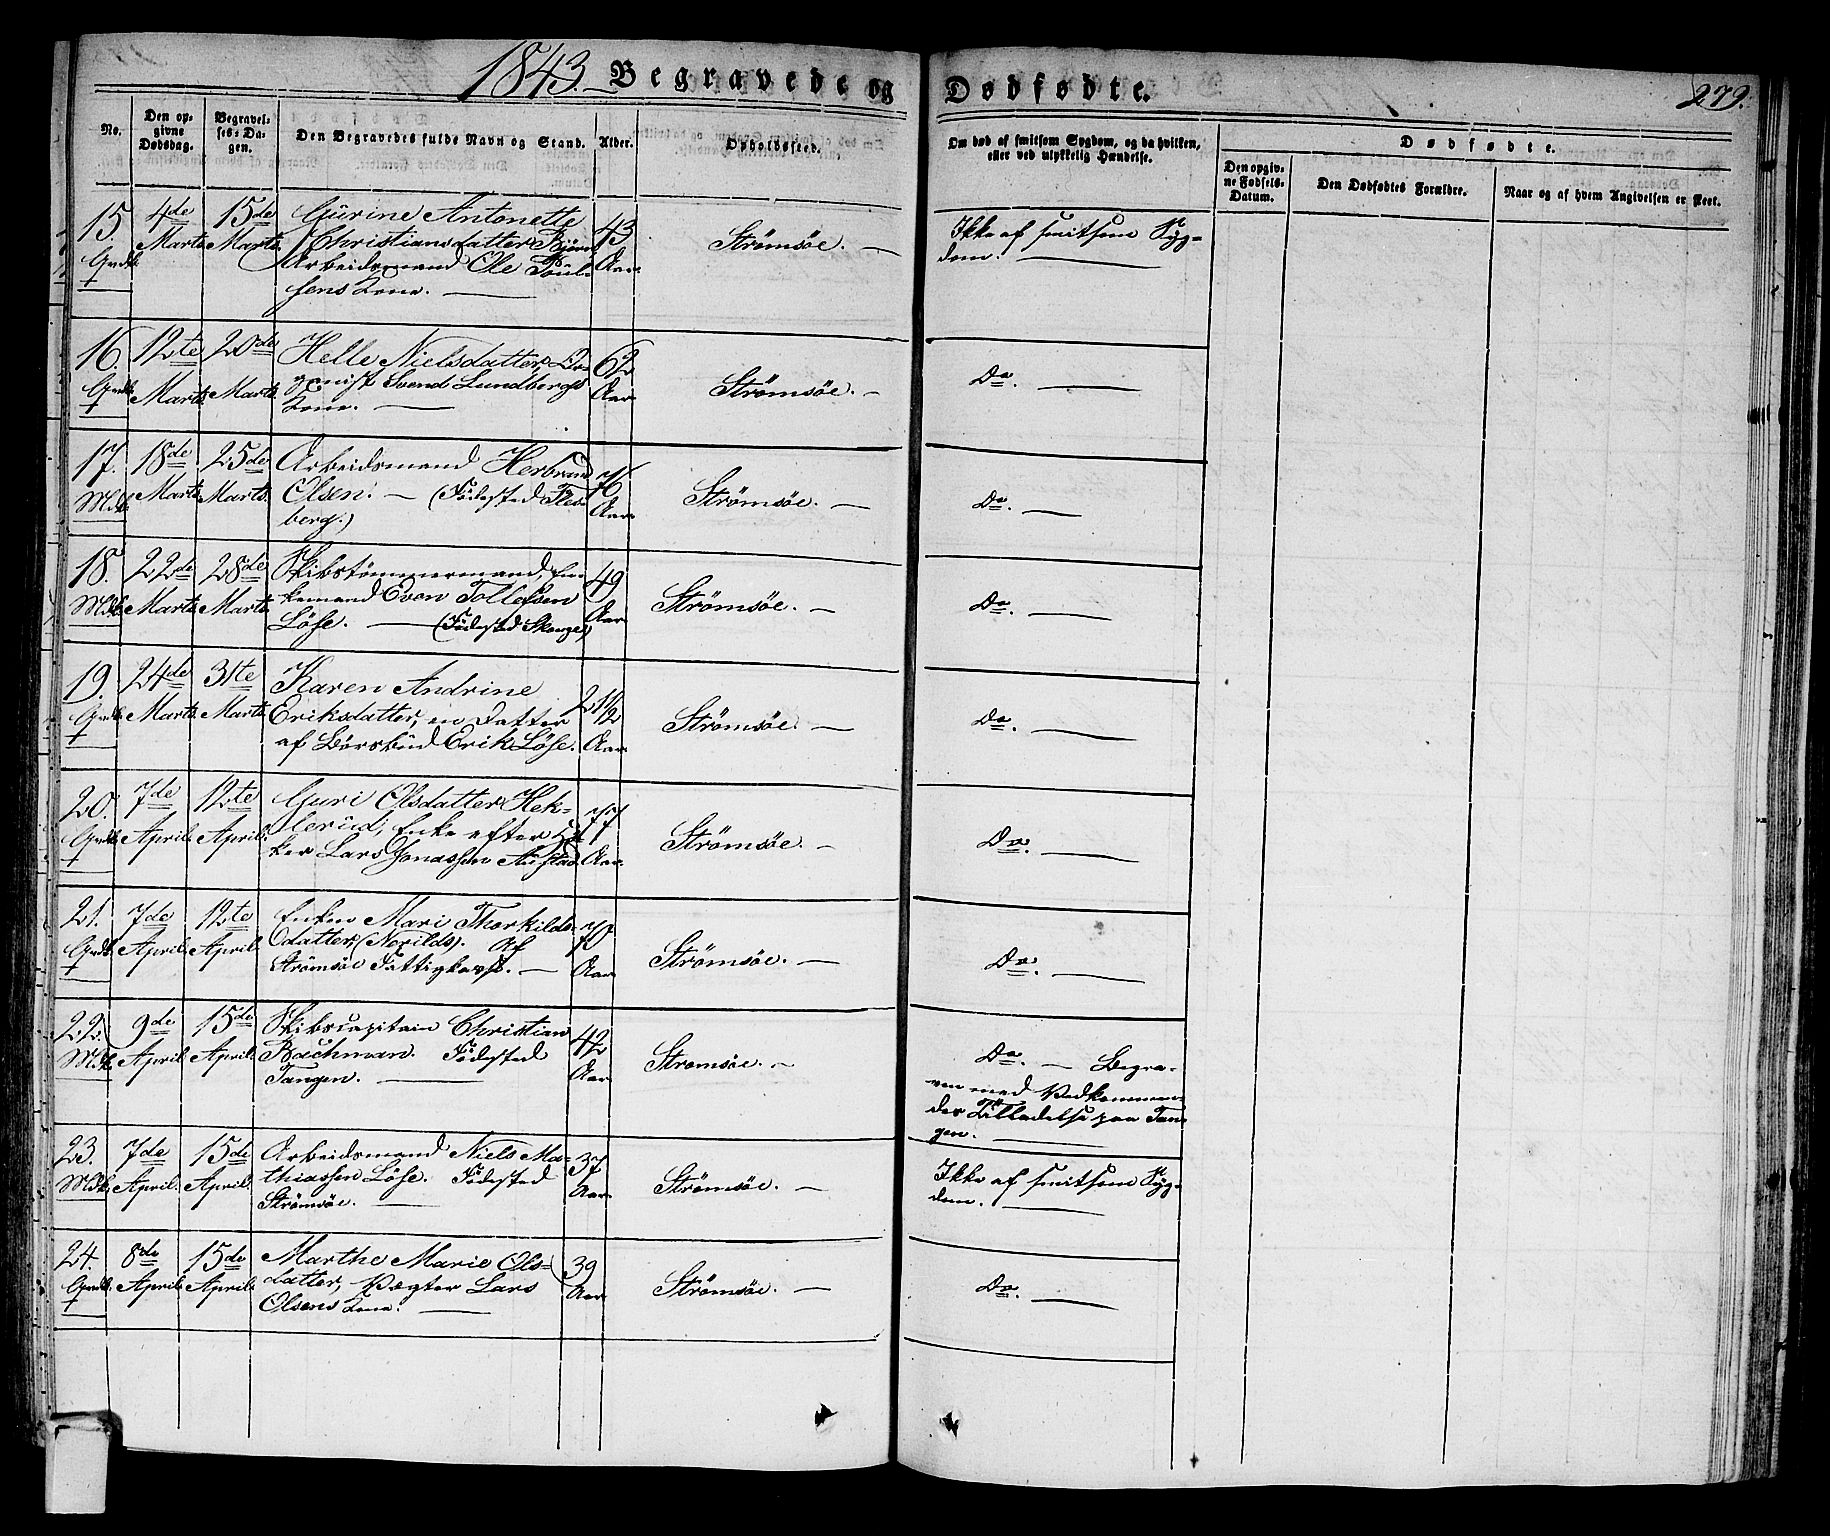 1843. Begravede og Dødfødte. 279.
No.
Den op-
givne
Dødsdag.
Begravel-
ses-Da-
gen.
Den Begravedes fulde Navn og Stand.
Alder.
Opholdssted.
Om død af smitsom Sygdom, og da hvilken,
eller ved ulykkelig Hændelse.
Dødfødte.
Den opgiv-
ne Fødsels-
Datum.
Den Dødfødtes Forældre.
Naar og af hvem Angivelsen er skeet.
15 4de Marts 15de Marts
Gurine Antonette
Christiansdatter
Arbeidsmand Ole Poul-
sens Kone. —
43 Aar
Strømsøe. —
Ikke af smitsom Syg-
dom. —
16. 12te Marts. 20de Marts.
Helle Nielsdatter, Or-
ganist Svend Lundbergs
Kone. —
62 Aar
Strømsøe. —
Do. —
17. 18de Marts 25de Marts.
Arbeidsmand Herbrand
Olsen. — (Födested Fles-
berg.)
76 Aar
Strømsøe. —
Do. —
18. 22de Marts 28de Marts
Skibstömmermand, En-
kemand Even Tollefsen
Löse. — (Födested Skouge)
49 Aar
Strømsøe. —
Do. —
19. 24de Marts 31te Marts
Karen Andrine
Eriksdatter, en Datter
af Börsbud Erik Löse.
2 1/2 Aar
Strømsøe. —
Do. —
20. 7de April. 12te April.
Guri Olsdatter Hek-
lerud, Enke efter
Lars Jonassen
77 Aar.
Strømsøe. —
Do. —
21. 7de April. 12te April
Enken Mari Thorkilds-
datter, (Norilds). Af
Strømsöe Fattigkasse. —
70 Aar
Strømsøe. —
Do. —
22. 9de April. 15de April.
Skibscapitain Christian
Bachman. Födested
Tangen. —
42 Aar
Stromsøe. —
Do. — Begra-
ven med Vedkommen-
des Tilladelse paa Tan-
gen. —
23. 7de April. 15de April.
Arbeidsmand Niels Ma-
thiassen Löse. Födested
Strømsöe. —
37 Aar
Strømsøe. —
Ikke af smitsom Syg-
dom. —
24. 8de April. 15de April.
Marthe Marie Ols-
datter, Vægter Lars
Olsens Kone. —
39 Aar
Strømsøe. —
Do. —